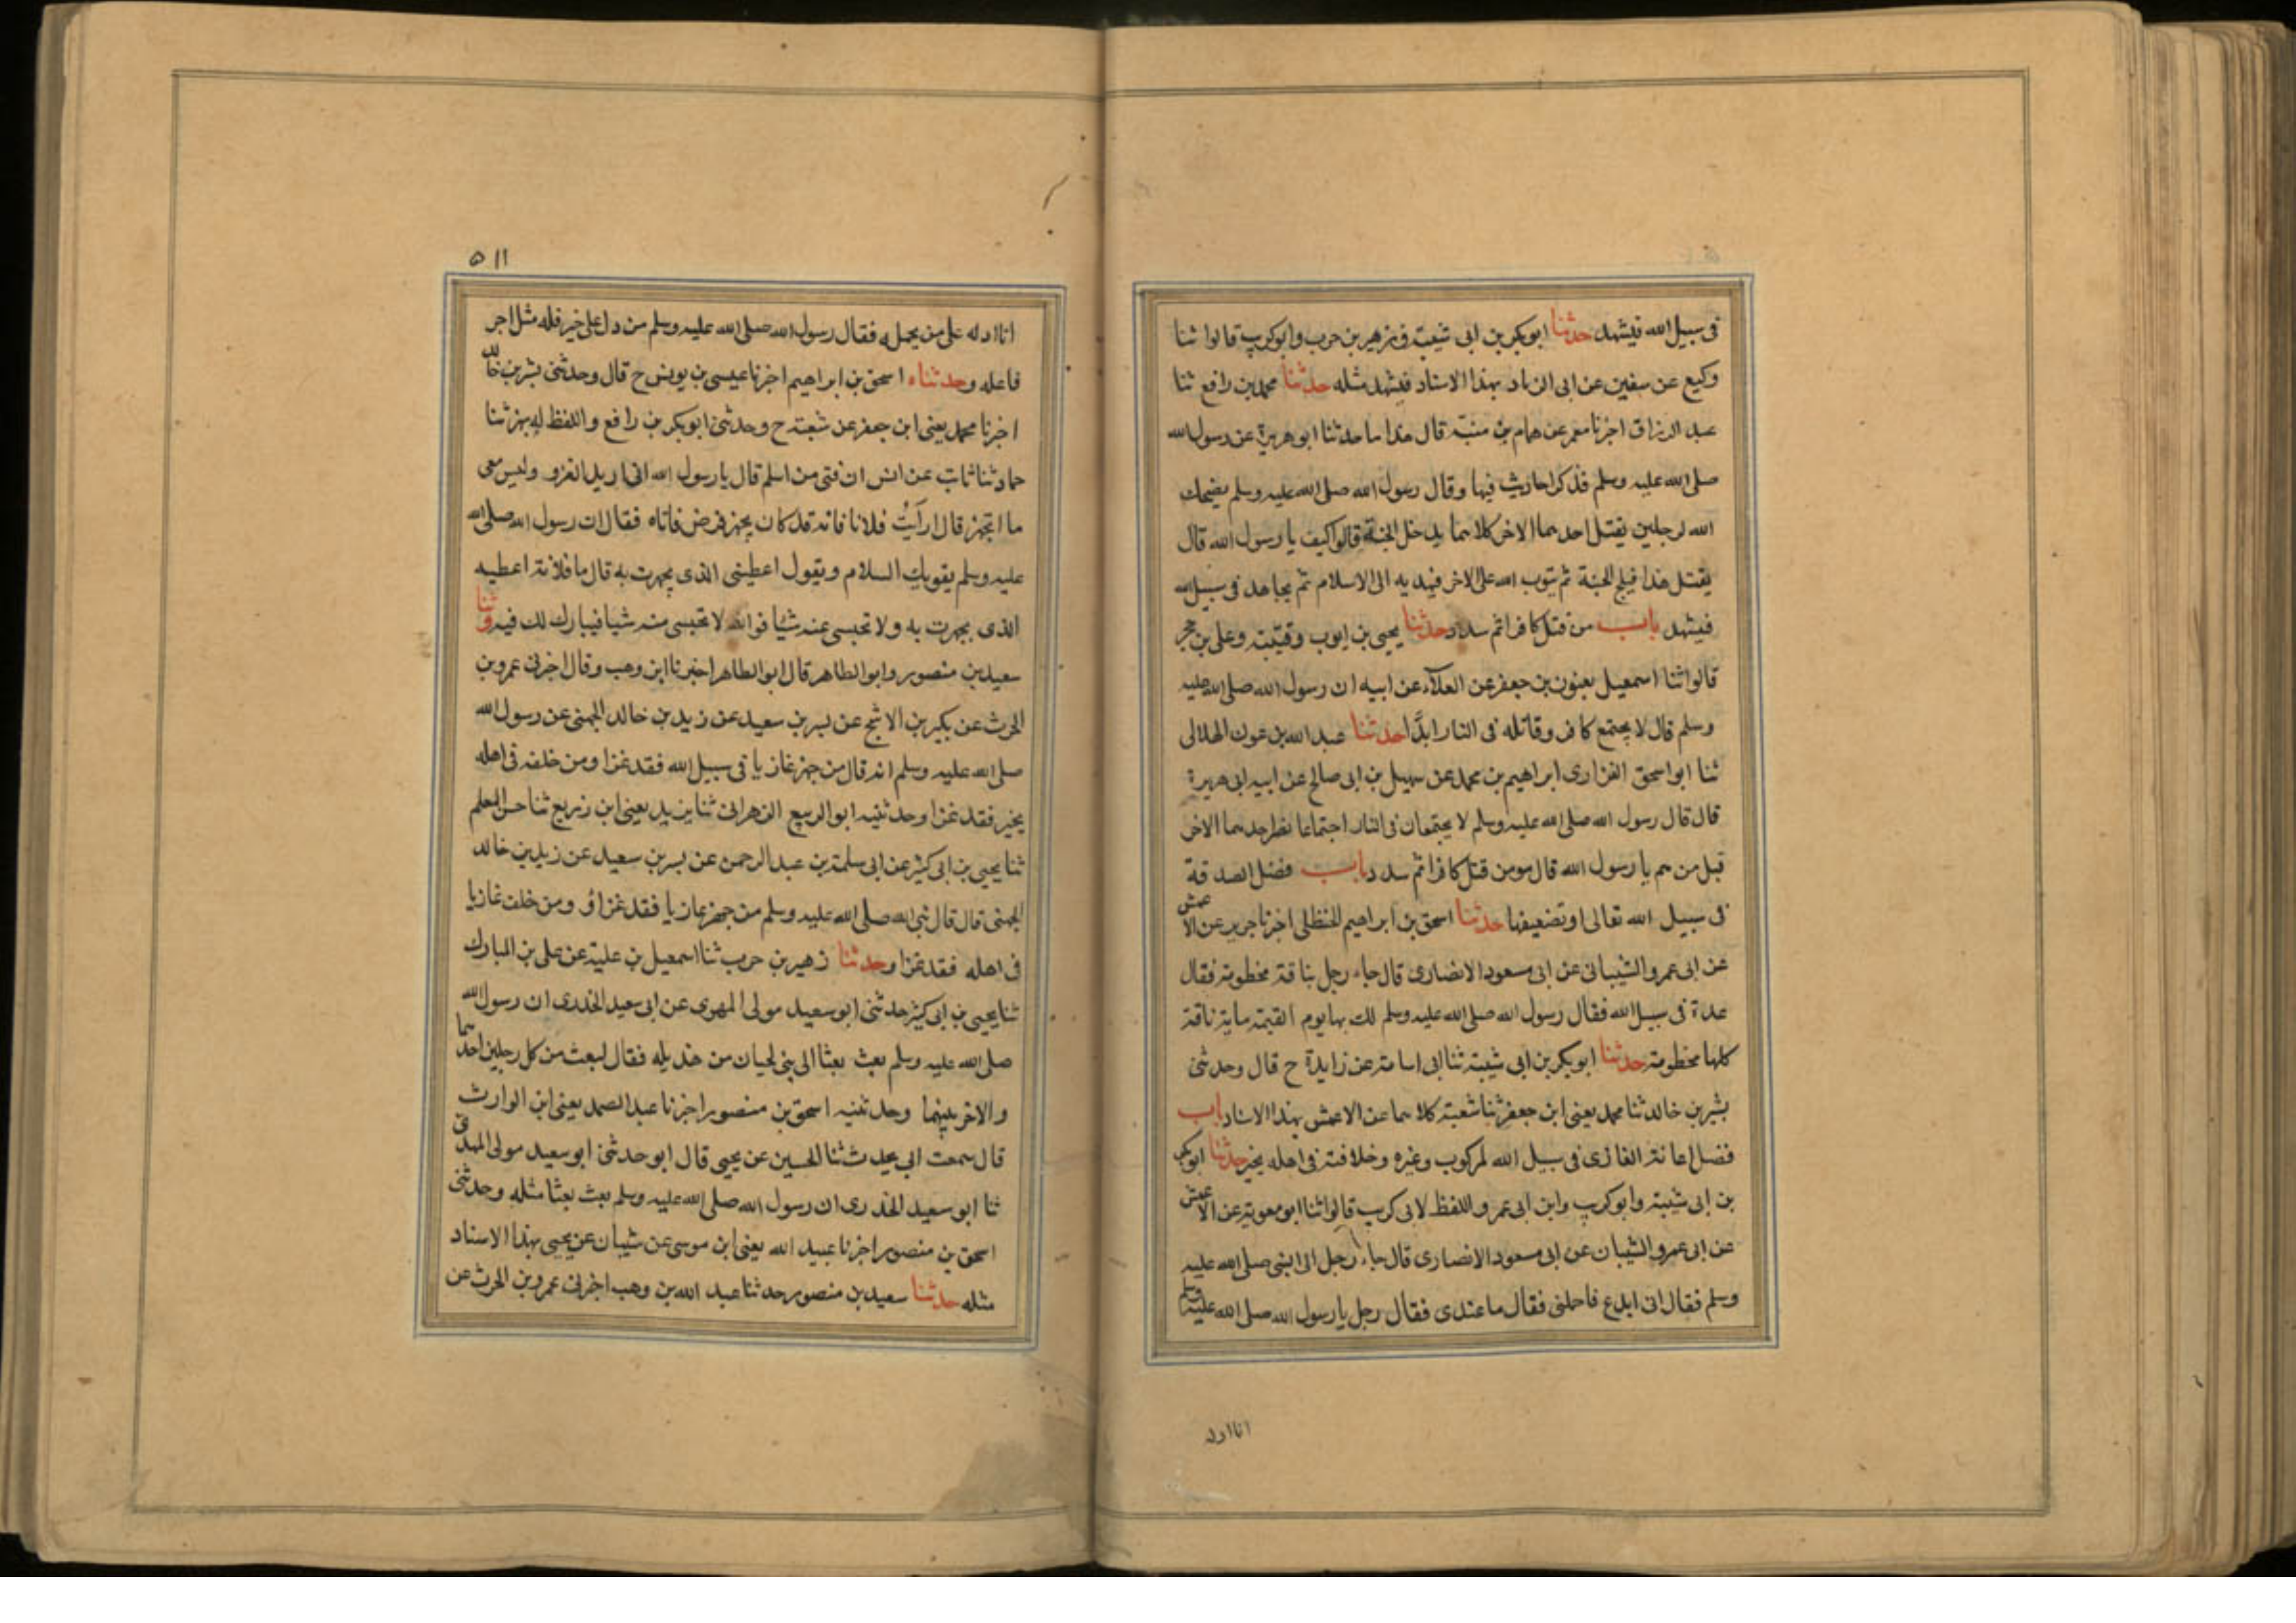 فى سبيل الله فيشهد حدثنا ابو بكر بن ابى شيبة و زهير بن حرب و ابو كريب قالوا ثنا
وكيع عن سفين عن ابى الزناد بهذا الاسناد فيشهد مثله حدثنا محمد بن رافع ثنا
عبد الرزاق اخبرنا معمر عن همام بن منبه قال هذا ما حدثنا ابو هريرة عن رسول الله
صلى الله عليه وسلم فذكر احاديث فيها وقال رسول الله صلى الله عليه وسلم يضحك
الله لرجلين يقتل احدهما الاخر كلاهما يدخل الجنة قالوا كيف يا رسول الله قال
يقتل هذا فيلج الجنة ثم يتوب الله على الاخر فيهديه الى الاسلام ثم يجاهد فى سبيل الله
فيشهد باب من قتل كافرا ثم سدد حدثنا يحيى بن ايوب وقتيبة وعلى بن حجر
قالوا ثنا اسمعيل يعنون بن جعفر عن العلاء عن ابيه ان رسول الله صلى الله عليه
وسلم قال لا يجتمع كافر وقاتله فى النار ابدًا حدثنا عبد الله بن عون الهلالى
ثنا ابو اسحق الفزارى ابراهيم بن محمد عن سهيل بن ابى صالح عن ابيه ابى هريرة
قال قال رسول الله صلى الله عليه وسلم لا يجتمعان فى النار اجتماعا احدهما الاخر
قيل من هم يا رسول الله قال مومن قتل كافرا ثم سدد باب فضل الصدقة
فى سبيل الله تعالى و تضعيفها حدثنا اسحق بن ابراهيم الحنظلى اخبرنا جرير عن الاعمش
عن ابى عمرو الشيبانى عن ابى مسعود الانصارى قال جاء رجل بناقة مخطومة فقال
هذة فى سبيل الله فقال رسول الله صلى الله عليه وسلم لك بها يوم القيمة ماية ناقة
كلها مخطومة حدثنا ابو بكر بن ابى شيبة ثنا ابى اسامة عن زايدة ح قال وحدثنى
بشر بن خالد ثنا محمد يعنى ابن جعفر ثنا شعبة كلاهما عن الاعمش بهذا الاسناد باب
فضل اعانة الغازى فى سبيل الله لمركوب وغيره وخلافته فى اهله بخير حدثنا ابو بكر
بن ابى شيبة و ابو كريب و ابن ابى عمر و اللفظ لابى كريب قالوا ثنا ابو معوية عن الاعمش
عن ابى عمرو الشيبان عن ابى مسعود الانصارى قال جاء رجل الى النبى صلى الله عليه
وسلم فقال انى ابدع فاحملنى فقال ما عندى فقال رجل يا رسول الله صلى الله عليه وسلم
انا ادله
٥١١
انا ادله على من يحمله فقال رسول الله صلى الله عليه وسلم من دل على خير فله مثل اجر
فاعله وحدثناه اسحق بن ابراهيم اخبرنا عيسى بن يونس ح قال وحدثنى بشر بن خالد
اخبرنا محمد يعنى ابن جعفر عن شعبة ح وحدثنى ابو بكر بن رافع واللفظ له بهز ثنا
حماد ثنا ثابت عن انس ان فتى من اسلم قال يا رسول الله انى اريد الغزو وليس معى
ما اتجهز قال ارأيتُ فلانا فانه قد كان يجهز فمرض فاتاه فقال ان رسول الله صلى الله
عليه وسلم يقويك السلام ويقول اعطينى الذى تجهزت به قال ما فلانة اعطيه
الذى تجهزت به ولا تحبسى عنه شيئا فوالله لا تحبسى منه شيا فيبارك لك فيه وثنا
سعيد بن منصور وابو الطاهر قال ابو الطاهر اخبرنا ابن وهب وقال اخبرنى عمرو بن
الحرث عن بكير بن الاشج عن بسر بن سعيد عن زيد بن خالد الجهنى عن رسول الله
صلى الله عليه وسلم انه قال من جهز غازيا فى سبيل الله فقد غزا ومن خلفه فى اهله
بخير فقد غزا وحدثنيه ابو الربيع الزهرانى ثنا يزيد يعنى ابن زريع ثنا حسن المعلم
ثنا يحيى بن ابى كثير عن ابى سلمة بن عبد الرحمن عن بسر بن سعيد عن زيد بن خالد
الجهنى قال قال نبى الله صلى الله عليه وسلم من جهز غازيا فقد غزا ومن خلف غازيا
فى اهله فقد غزا وحدثنا زهير بن حرب ثنا اسمعيل بن علية عن على بن المبارك
ثنا يحيى بن ابى كثير حدثنى ابو سعيد مولى المهرى عن ابى سعيد الخدرى ان رسول الله
صلى الله عليه وسلم بعث بعثا الى بنى لحيان من هذيله فقال لبعث من كل رجلين احدهما
والاخر بينهما وحدثنيه اسحق بن منصور اخبرنا عبد الصمد يعنى ابن الوارث
قال سمعت ابى يحدث ثنا الحسين عن يحيى قال ابو حدثنى ابو سعيد مولى المهدى
ثنا ابو سعيد الخدرى ان رسول الله صلى الله عليه وسلم بعث بعثا مثله وحدثنى
اسحق بن منصور اخبرنا عبيد الله يعنى ابن موسى عن شيبان عن يحيى بهذا الاسناد
مثله حدثنا سعيد بن منصور حدثنا عبد الله بن وهب اخبرنى عمرو بن الحرث عن